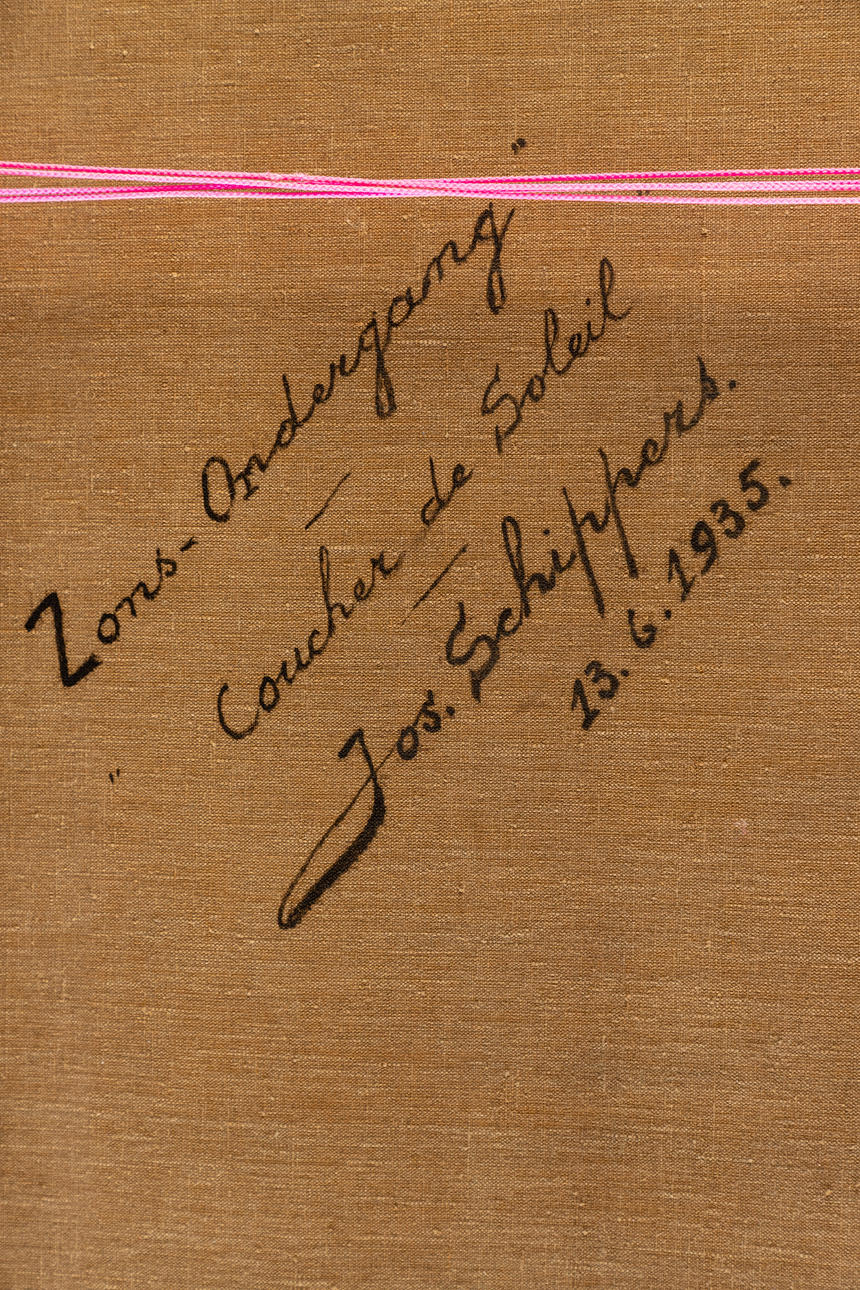 "Zons-Ondergang"
—
Coucher de Soleil"
—
Jos. Schippers.
13. 6. 1935.